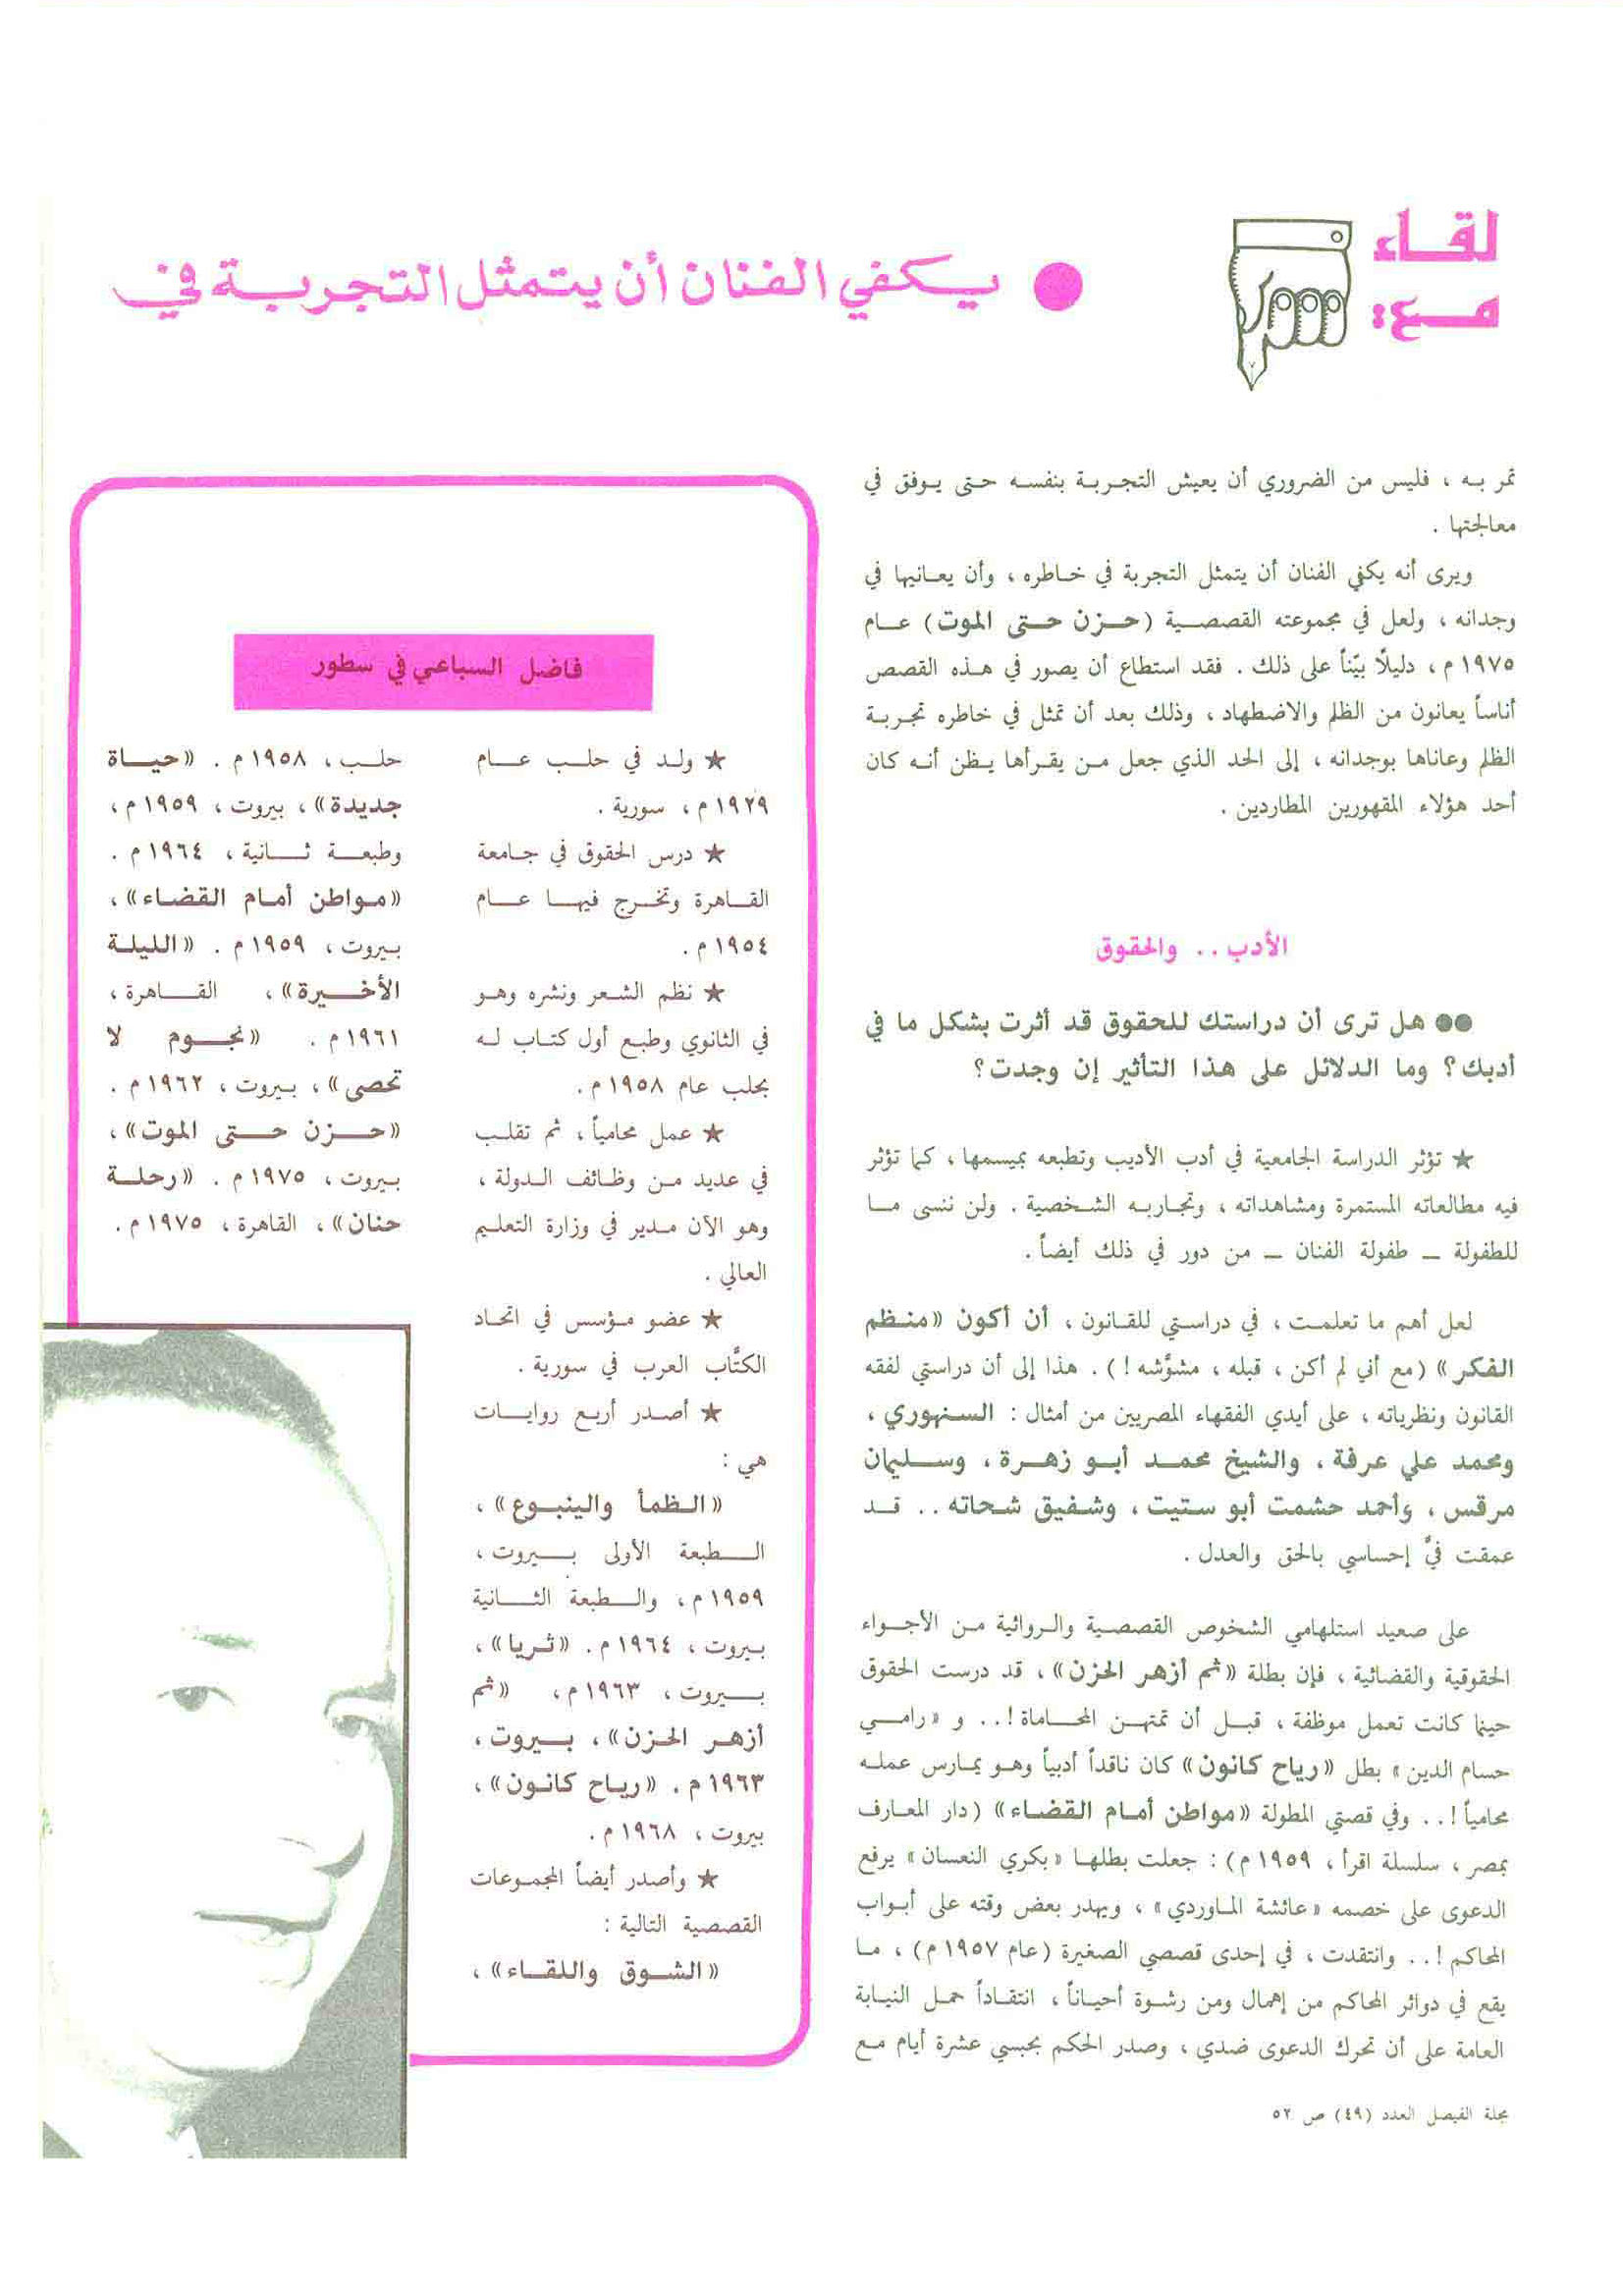 لقاء
مع:
● يكفي الفنان أن يتمثل التجربة في
تمر به ، فليس من الضروري أن يعيش التجربة بنفسه حتى يوفق في
معالجتها .
ويرى أنه يكفي الفنان أن يتمثل التجربة في خاطره ، وأن يعانيها في
وجدانه ، ولعل في مجموعته القصصية (حزن حتى الموت) عام
١٩٧٥ م ، دليلًا بيّناً على ذلك . فقد استطاع أن يصور في هذه القصص
أناساً يعانون من الظلم والاضطهاد ، وذلك بعد أن تمثل في خاطره تجربة
الظلم وعاناها بوجدانه ، إلى الحد الذي جعل من يقرأها يظن أنه كان
أحد هؤلاء المقهورين المطاردين .
الأدب .. والحقوق
●● هل ترى أن دراستك للحقوق قد أثرت بشكل ما في
أدبك ؟ وما الدلائل على هذا التأثير إن وجدت ؟
★ تؤثر الدراسة الجامعية في أدب الأديب وتطبعه بميسمها ، كما تؤثر
فيه مطالعاته المستمرة ومشاهداته ، وتجاربه الشخصية . ولن ننسى ما
للطفولة ــ طفولة الفنان ــ من دور في ذلك أيضاً .
لعل أهم ما تعلمت ، في دراستي للقانون ، أن أكون «منظم
الفكر» (مع أني لم أكن ، قبله ، مشوَّشه !) . هذا إلى أن دراستي لفقه
القانون ونظرياته ، على أيدي الفقهاء المصريين من أمثال : السنهوري ،
ومحمد علي عرفة ، والشيخ محمد أبو زهرة ، وسليمان
مرقس ، وأحمد حشمت أبو ستيت ، وشفيق شحاته .. قد
عمقت فيَّ إحساسي بالحق والعدل .
على صعيد استلهامي الشخوص القصصية والروائية من الأجواء
الحقوقية والقضائية ، فإن بطلة «ثم أزهر الحزن» ، قد درست الحقوق
حينما كانت تعمل موظفة ، قبل أن تمتهن المحاماة !.. و «رامي
حسام الدين» بطل «رياح كانون» كان ناقداً أدبياً وهو يمارس عمله
محامياً !.. وفي قصتي المطولة «مواطن أمام القضاء» (دار المعارف
بمصر ، سلسلة اقرأ ، ١٩٥٩ م) : جعلت بطلها «بكري النعسان» يرفع
الدعوى على خصمه «عائشة الماوردي» ، ويهدر بعض وقته على أبواب
المحاكم !.. وانتقدت ، في إحدى قصصي الصغيرة (عام ١٩٥٧ م) ، ما
يقع في دوائر المحاكم من إهمال ومن رشوة أحياناً ، انتقاداً حمل النيابة
العامة على أن تحرك الدعوى ضدي ، وصدر الحكم بحبسي عشرة أيام مع
فاضل السباعي في سطور
★ ولد في حلب عام
١٩٢٩ م ، سورية .
★ درس الحقوق في جامعة
القاهرة وتخرج فيها عام
١٩٥٤ م .
★ نظم الشعر ونشره وهو
في الثانوي وطبع أول كتاب له
بحلب عام ١٩٥٨ م .
★ عمل محامياً ، ثم تقلب
في عديد من وظائف الدولة ،
وهو الآن مدير في وزارة التعليم
العالي .
★ عضو مؤسس في اتحاد
الكتَّاب العرب في سورية .
★ أصدر أربع روايات
هي :
«الظمأ والينبوع» ،
الطبعة الأولى بيروت ،
١٩٥٩ م ، والطبعة الثانية
بيروت ، ١٩٦٤ م . «ثريا» ،
بيروت ، ١٩٦٣ م ، «ثم
أزهر الحزن» ، بيروت ،
١٩٦٣ م . «رياح كانون» ،
بيروت ، ١٩٦٨ م .
★ وأصدر أيضاً المجموعات
القصصية التالية :
«الشوق واللقاء» ،
حلب ، ١٩٥٨ م . «حياة
جديدة» ، بيروت ، ١٩٥٩ م ،
وطبعة ثانية ، ١٩٦٤ م .
«مواطن أمام القضاء» ،
بيروت ، ١٩٥٩ م . «الليلة
الأخيرة» ، القاهرة ،
١٩٦١ م . «نجوم لا
تحصى» ، بيروت ، ١٩٦٢ م .
«حزن حتى الموت» ،
بيروت ، ١٩٧٥ م . «رحلة
حنان» ، القاهرة ، ١٩٧٥ م .
مجلة الفيصل العدد (٤٩) ص ٥٢